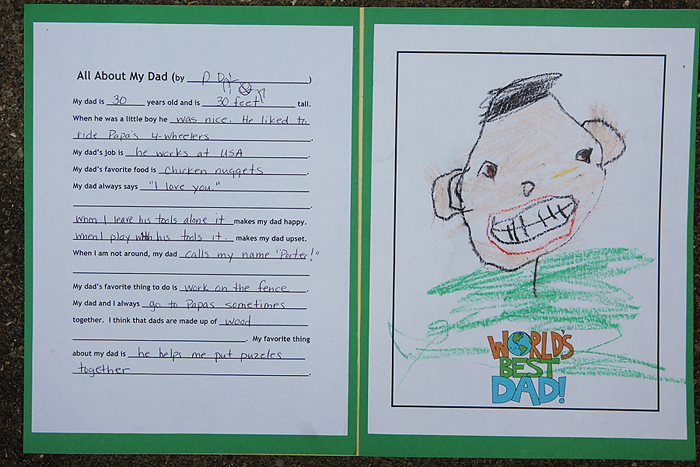 All About My Dad (by )
My dad is 30 years old and is 30 feet tall.
When he was a little boy he was nice. He liked to
ride Papa's 4-wheelers.
My dad's job is he works at USA.
My dad's favorite food is chicken nuggets.
My dad always says "I love you."
When I leave his tools alone it makes my dad happy.
when I play with his tools it. makes my dad upset.
When I am not around, my dad calls my name "Porter!"
My dad's favorite thing to do is work on the fence.
My dad and I always go to Papas sometimes
together. I think that dads are made up of wood
. My favorite thing
about my dad is he helps me put puzzles
together
WORLD'S
BEST
DAD!